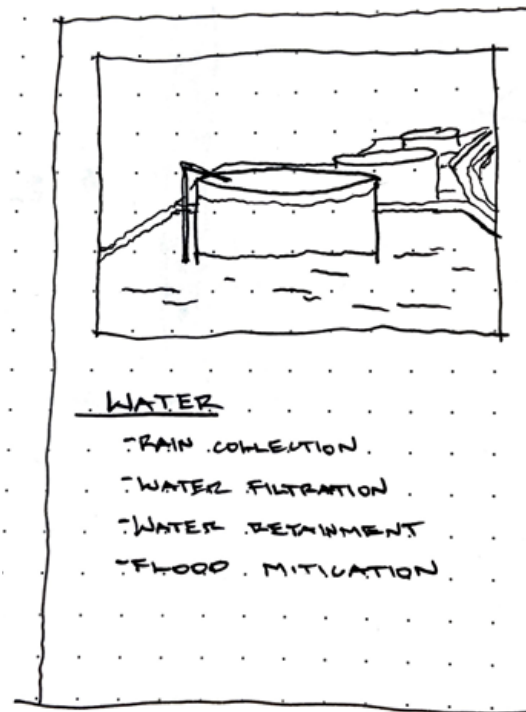 WATER
- RAIN COLLECTION
- WATER FILTRATION
- WATER RETAINMENT
- FLOOD MITIGATION